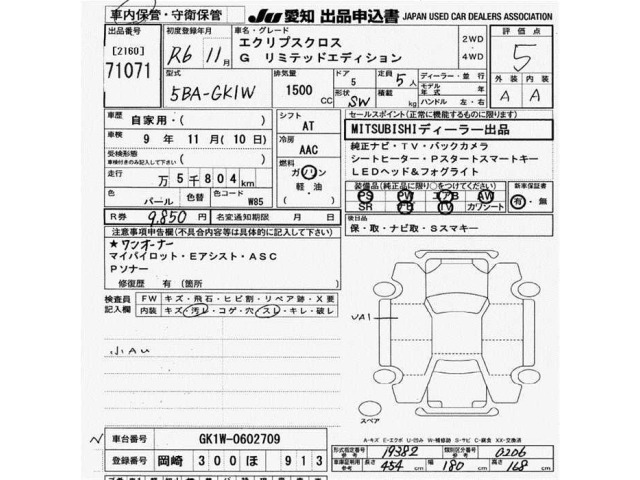 車内保管・守衛保管
JU 愛知 出品申込書 JAPAN USED CAR DEALERS ASSOCIATION
出品番号
[2160]
71071
初度登録年月
R6 11月
車名・グレード
エクリプスクロス
G リミテッドエディション
2WD
・
4WD
評価点
5
型式
5BA-GK1W
排気量
1500 CC
ドア
5
形状
SW
定員
5人
積載
kg
ディーラー・並行
モデル年式 年
ハンドル 左・右
外装 内装
A A
車歴
自家用・( )
車検
9年 11月(10日)
受検形態
車検付きのみ記入して下さい
走行
万5千804km
色
パール
色替
色コード
W85
シフト
AT
冷房
AAC
燃料
ガソリン
軽・油
( )
セールスポイント(正常に機能するものに限ります)
MITSUBISHIディーラー出品
純正ナビ・TV・バックカメラ
シートヒーター・Pスタートスマートキー
LEDヘッド&フォグライト
装備品(純正品に限り○をつけてください)
PS PW エアB AW
SR ナビ TV カワシート
新車保証書
有・無
R券 9,850円
名変通知期限 月 日
後日品
保・取・ナビ取・Sスマキー
注意事項申告欄(不具合内容等は具体的に記入して下さい)
★ワンオーナー
マイパイロット・Eアシスト・ASC
Pソナー
修復歴 有(箇所 )
検査員記入欄
FW キズ・飛石・ヒビ割・リペア跡・X要
内装 キズ・汚レ・コゲ・穴・スレ・キレ・破レ
小AU
UA1
スペア
A-キズ E-エクボ U-凹み W-補修跡 S-サビ C-腐食 XX-交換済
車台番号 GK1W-0602709
登録番号 岡崎 300 ほ 913
形式指定番号 19382 類別区分番号 0206
車庫証明用参考 長さ 454 幅 180 高さ 168 cm